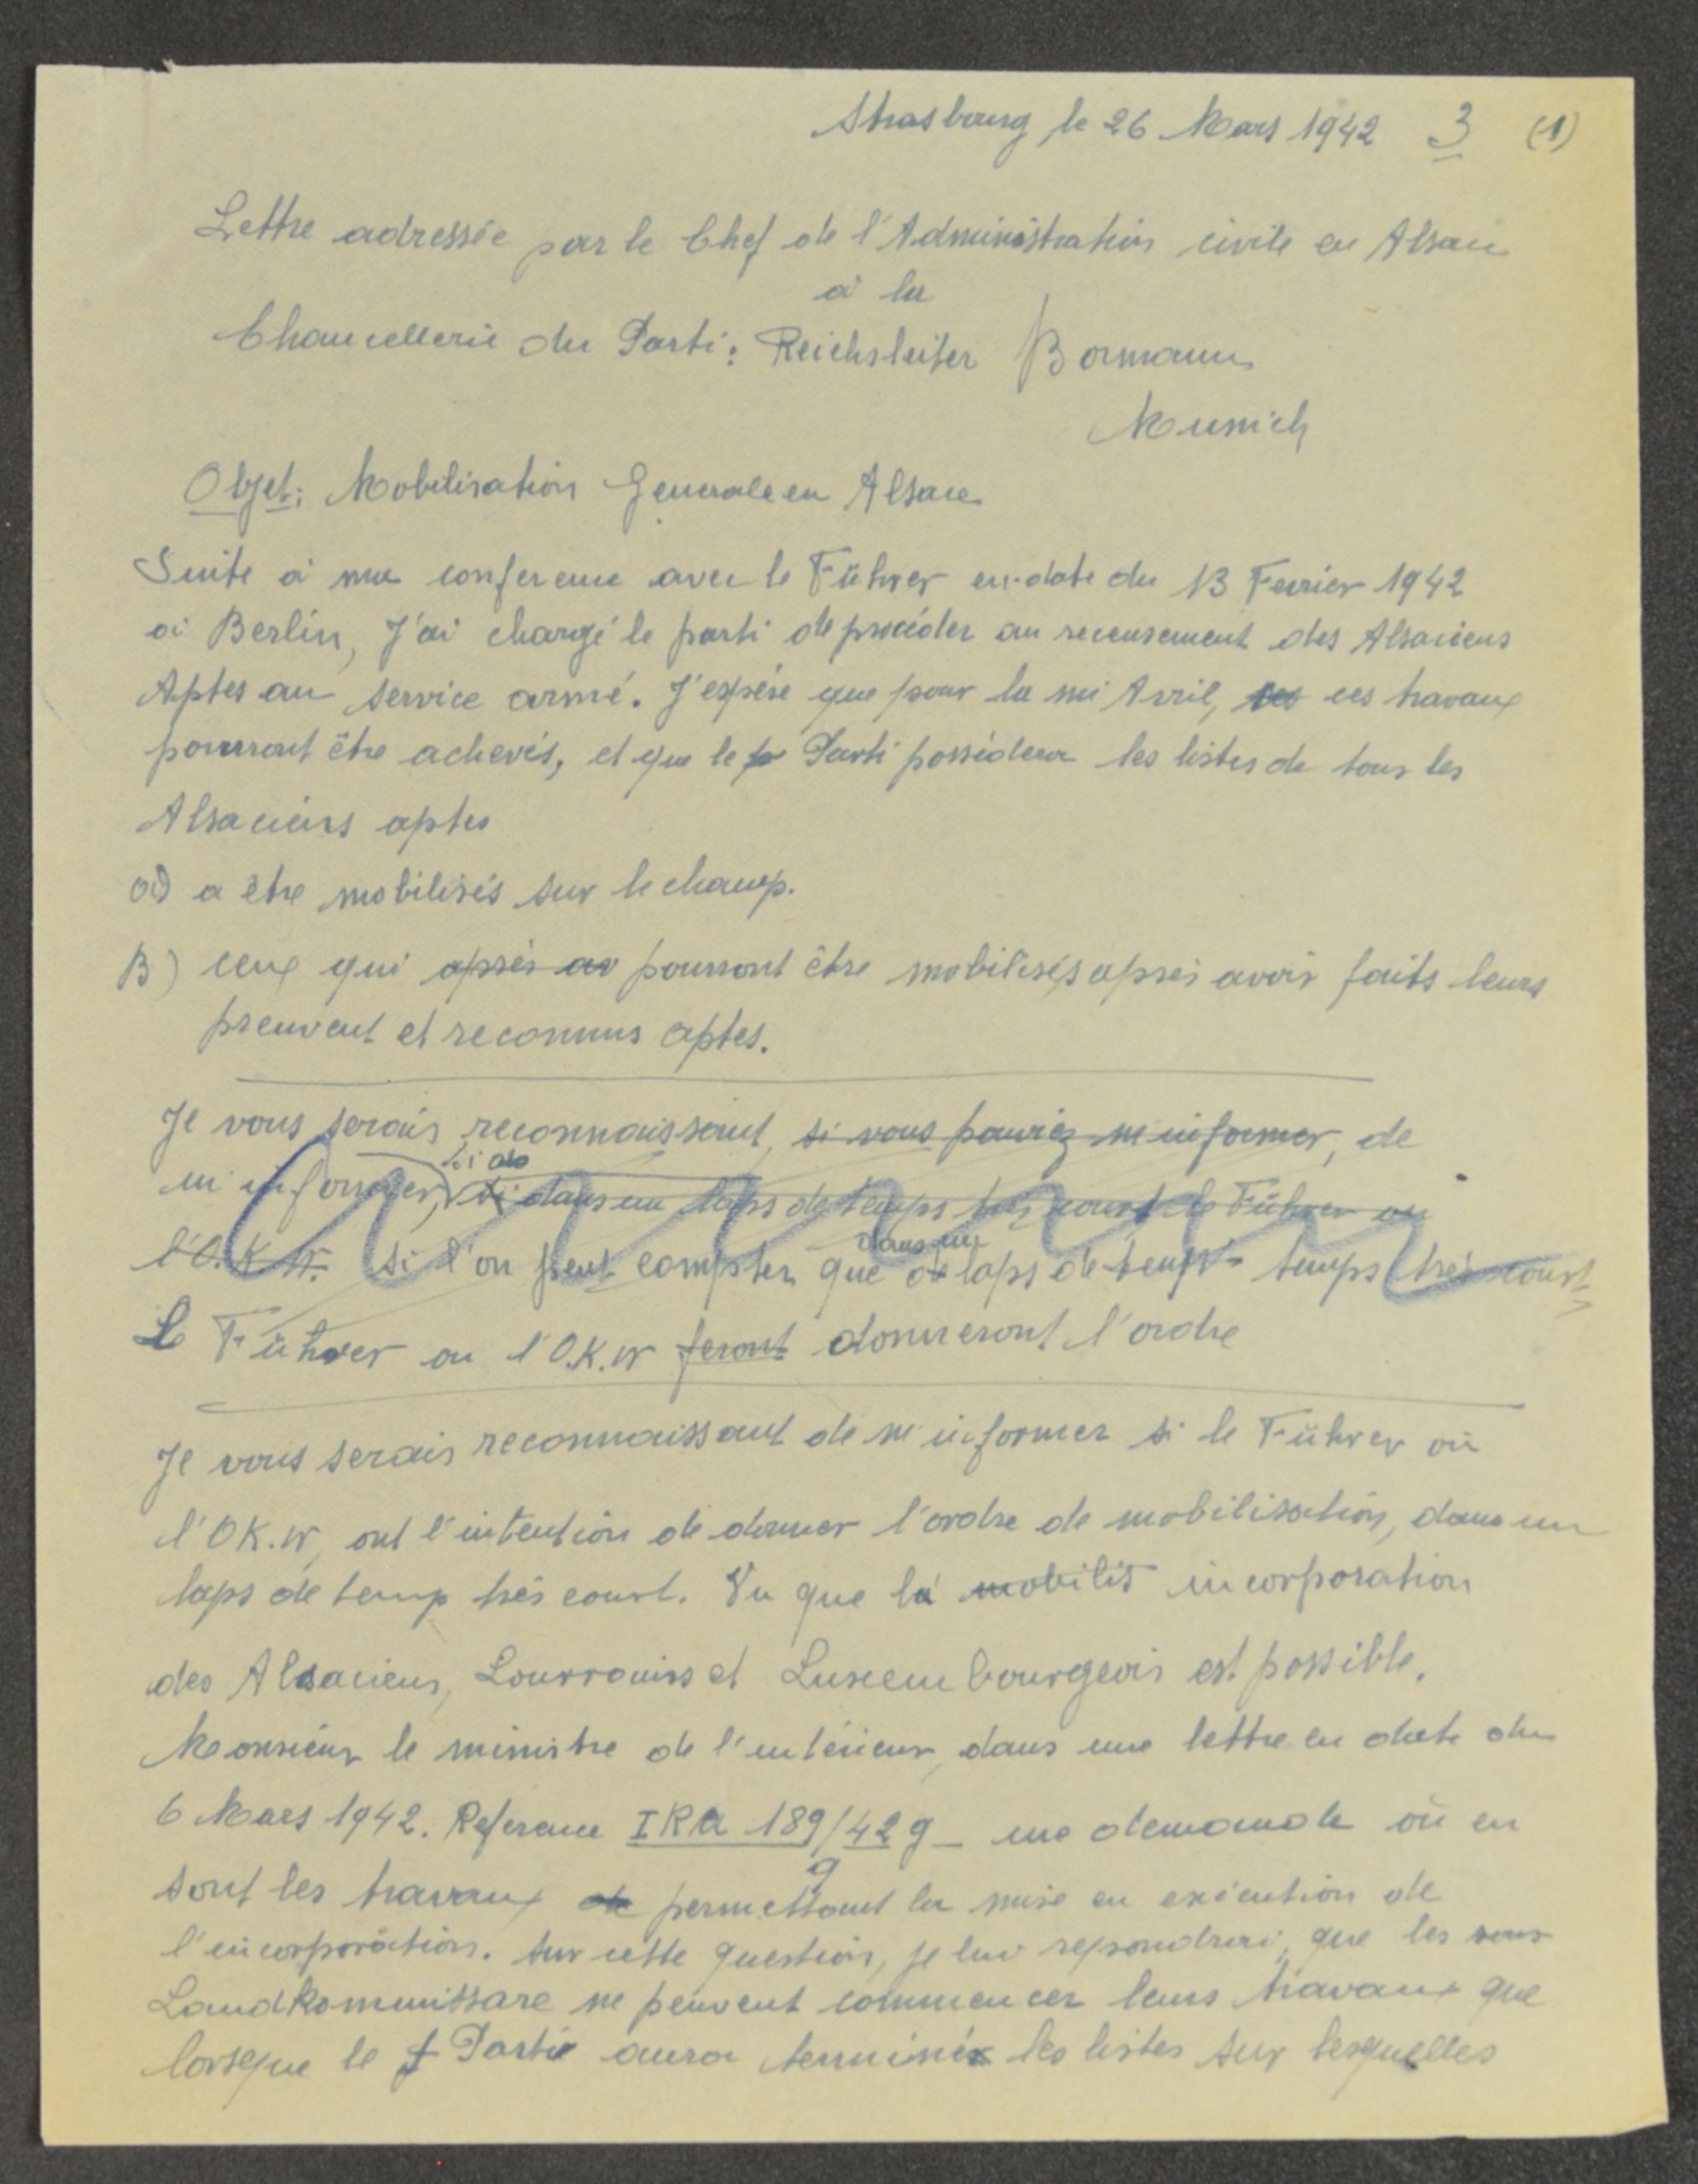 Strasbourg, le 26 Mars 1942 3 (1)
Lettre adressée par le Chef de l'Administration civile en Alsace
à la
Chancellerie du Parti: Reichsleiter Bormann
Munich
Objet: Mobilisation Generale en Alsace
Suite à ma conference avec le Führer en date du 13 Fevrier 1942
à Berlin, J'ai chargé le parti de procéder au recensement des Alsaciens
Aptes au service armé. J'espére que pour la mi Avril, ces travaux
pourront être achevés, et que le Parti possédera les listes de tous les
Alsaciens aptes
a) a être mobilisés sur le champ.
B) ceux qui après av pourront être mobilisés après avoir faits leurs
preuvent et reconnus aptes.
Je vous serais reconnaissant, si vous pouviez m'informer, de
m'informer, si dans un laps de temps très court le Führer ou
dans un
l'O.K.W. si l'on peut compter que de laps de temps temps très court,
Le Führer ou l'O.K.W feront donneront l'ordre
Je vous serais reconnaissant de m'informer si le Führer où
l'OK.W, ont l'intention de donner l'ordre de mobilisation, dans un
laps de temp très court. Vu que la mobilis incorporation
des Alsaciens, Lourrains et Luxembourgeois est possible.
Monsieur le ministre de l'intérieur, dans une lettre en date du
6 Mars 1942. Reference IRA 189/42 g - me demande où en
g
sont les travaux de permettant la mise en exécution de
l'incorporation. Sur cette question, je lui repondrai, que les
Landkommissare ne peuvent commencer leurs travaux que
lorseque le Parti aura terminé les listes sur lesquelles